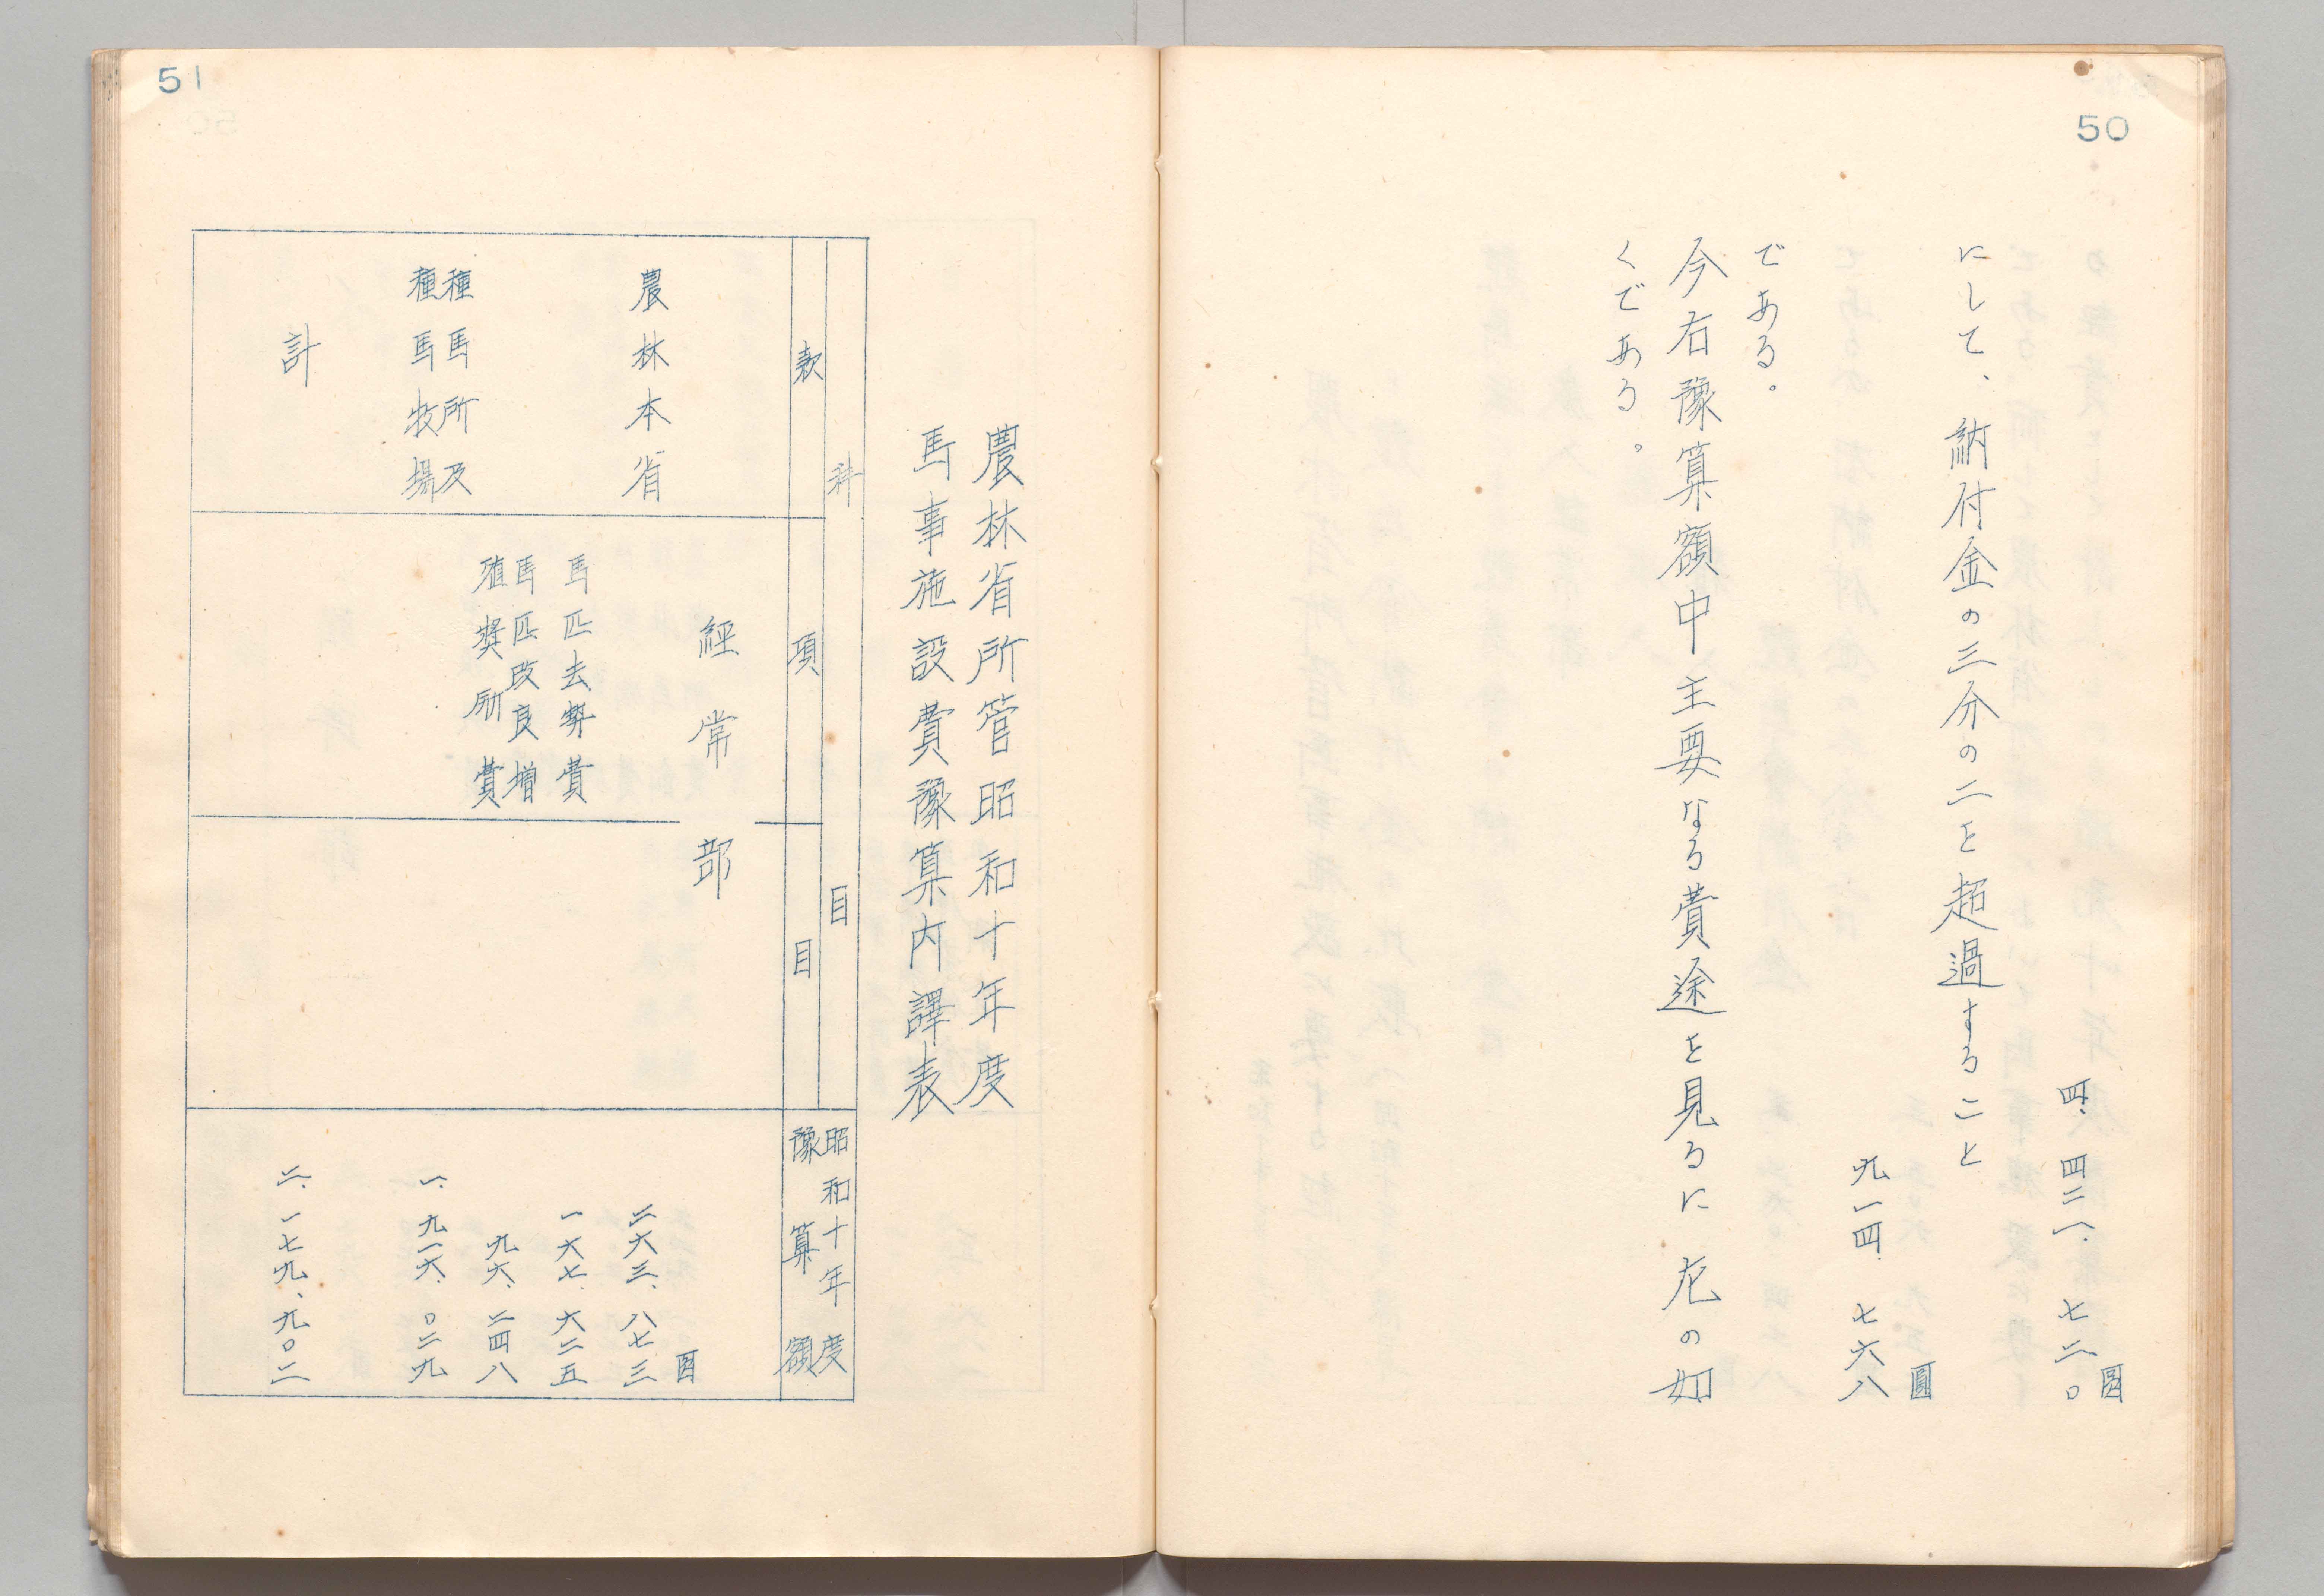 50
四、四二一、七二〇圓
にして、納付金の三分の二を超過すること
九一四、七六八圓
である。
今右豫算額中主要なる費途を見るに左の如
くである。
51
農林省所管昭和十年度
馬事施設費豫算内譯表
科目
款
項
目
昭和十年度
豫算額
經常部
圓
農林本省
二六三、八七三
馬匹去勢費
一六七、六二五
馬匹改良増
殖奬励費
九六、二四八
種馬所及
種馬牧場
一、九一六、〇二九
計
二、一七九、九〇二